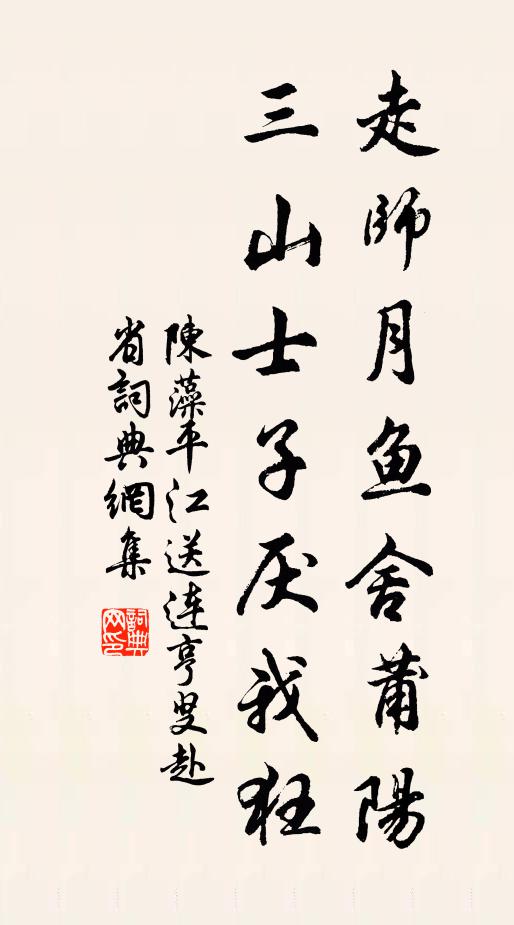 走師月鱼舍莆陽
三山士子厌我狂
陳藻平江送连亨叟赴
省詞典網集
詞典網印